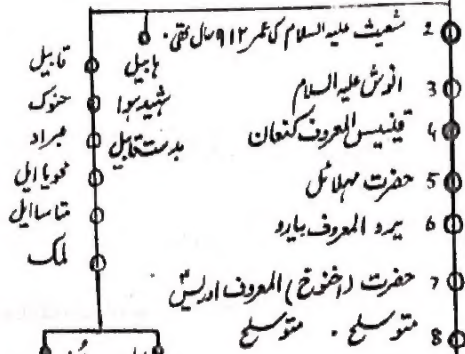 2 شعیث علیہ السلام کی عمر ۹۱۲ سال تھی۔
3 انوش علیہ السلام
4 قینیس المعروف کنعان
5 حضرت مہلائل
6 یرو المعروف یارو
7 حضرت (اخنوخ) المعروف ادریسؑ
8 متوسلح . متوسلح
ہابیل
شہید ہوا
بدست قابیل
قابیل
حنوک
عیراد
محویاایل
متاساایل
لمک